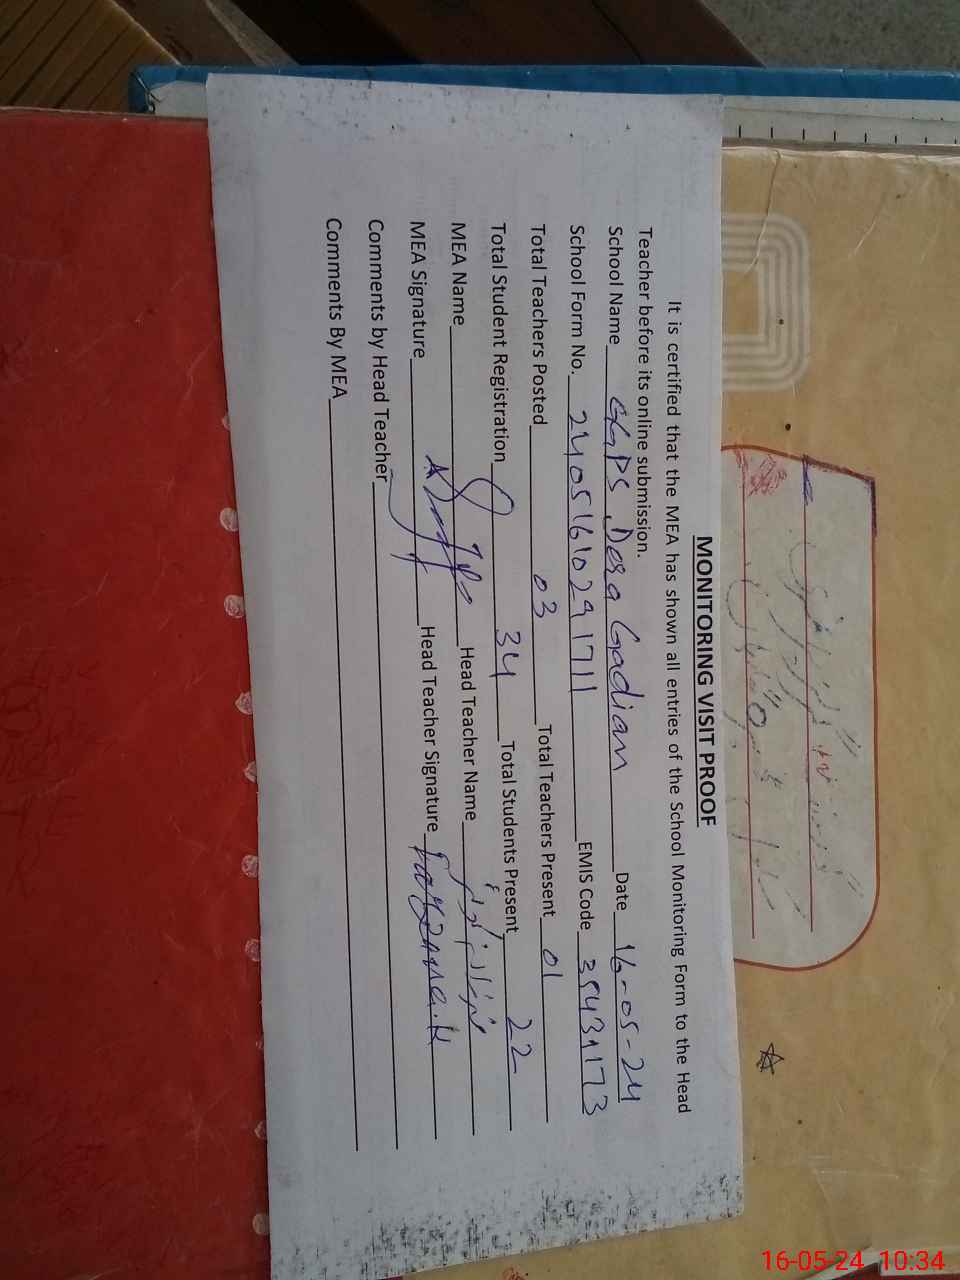 MONITORING VISIT PROOF
It is certified that the MEA has shown all entries of the School Monitoring Form to the Head
Teacher before its online submission.
School Name GGPS Dera Gadian Date 16-05-24
School Form No. 24051610291711 EMIS Code 35431173
Total Teachers Posted 03 Total Teachers Present 01
Total Student Registration 34 Total Students Present 22
MEA Name Head Teacher Name
MEA Signature Head Teacher Signature
Comments by Head Teacher
Comments By MEA
16-05-24 10:34